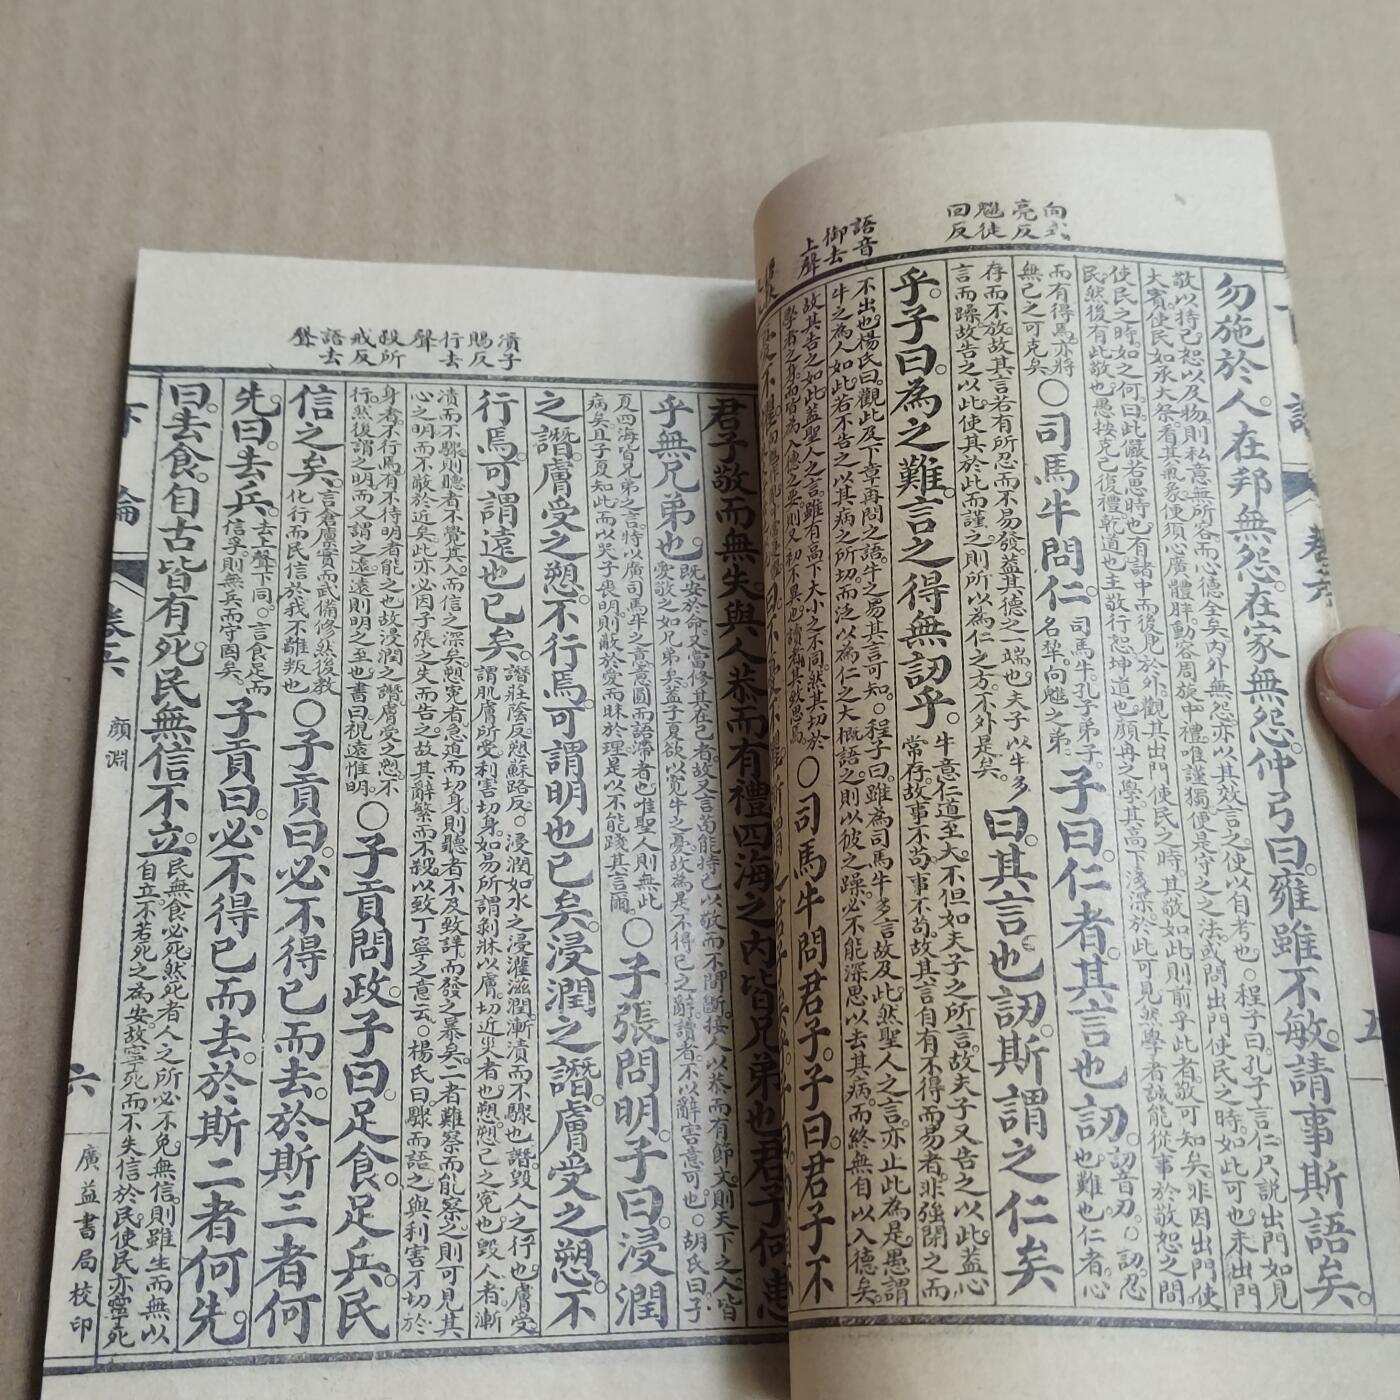 向式
亮反
魋徒
回反
語音
御去
上聲
勿施於人在邦無怨在家無怨仲弓曰雍雖不敏請事斯語矣
敬以持己恕以及物則私意無所容而心德全矣內外無怨亦以其效言之使以自考也○程子曰孔子言仁只說出門如見
大賓使民如承大祭看其氣象便須心廣體胖動容周旋中禮唯謹獨便是守之之法或問出門使民之時如此可也未出門
使民之時如之何曰此儼若思時也有諸中而後見於外觀其出門使民之時其敬如此則前乎此者敬可知矣非因出門使
民然後有此敬也愚按克己復禮乾道也主敬行恕坤道也顏冉之學其高下淺深於此可見然學者誠能從事於敬恕之間
而有得焉亦將
無己之可克矣
○司馬牛問仁
司馬牛孔子弟子
名犂向魋之弟
子曰仁者其言也訒
訒音刃○訒忍
也難也仁者心
存而不放故其言若有所忍而不易發蓋其德之一端也夫子以牛多
言而躁故告之以此使其於此而謹之則所以為仁之方不外是矣
曰其言也訒斯謂之仁矣
乎子曰為之難言之得無訒乎
牛意仁道至大不但如夫子之所言故夫子又告之以此蓋心
常存故事不苟事不苟故其言自有不得而易者非強閉之而
不出也楊氏曰觀此及下章再問之語牛之易其言可知○程子曰雖為司馬牛多言故及此然聖人之言亦止此為是愚謂
牛之為人如此若不告之以其病之所切而泛以為仁之大概語之則以彼之躁必不能深思以去其病而終無自以入德矣
故其告之如此蓋聖人之言雖有高下大小之不同然其切於
學者之身而皆為入德之要則又初不異也讀者其致思焉
○司馬牛問君子子曰君子不
五
瀆子
賜反
行去
聲
殺所
戒反
語去
聲
君子敬而無失與人恭而有禮四海之內皆兄弟也君子何患
乎無兄弟也
既安於命又當修其在己者故又言苟能持己以敬而不間斷接人以恭而有節文則天下之人皆
愛敬之如兄弟矣蓋子夏欲以寬牛之憂故為是不得已之辭讀者不以辭害意可也○胡氏曰子
夏四海皆兄弟之言特以廣司馬牛之意意圓而語滯者也惟聖人則無此
病矣且子夏知此而以哭子喪明則蔽於愛而昧於理是以不能踐其言爾
○子張問明子曰浸潤
之譖膚受之愬不行焉可謂明也已矣浸潤之譖膚受之愬不
行焉可謂遠也已矣
譖莊蔭反愬蘇路反○浸潤如水之浸灌滋潤漸漬而不驟也譖毀人之行也膚受
謂肌膚所受利害切身如易所謂剝牀以膚切近災者也愬愬己之冤也毀人者漸
漬而不驟則聽者不覺其入而信之深矣愬冤者急迫而切身則聽者不及致詳而發之暴矣二者難察而能察之則可見其
心之明而不蔽於近矣此亦必因子張之失而告之故其辭繁而不殺以致丁寧之意云○楊氏曰驟而語之與利害不切於
身者不行焉有不待明者能之也故浸潤之譖膚受之愬不
行然後謂之明而又謂之遠遠則明之至也書曰視遠惟明
○子貢問政子曰足食足兵民
信之矣
言倉廩實而武備修然後教
化行而民信於我不離叛也
○子貢曰必不得已而去於斯三者何
先曰去兵
去上聲下同○言食足而
信孚則無兵而守固矣
子貢曰必不得已而去於斯二者何先
曰去食自古皆有死民無信不立
民無食必死然死者人之所必不免無信則雖生而無以
自立不若死之為安故寧死而不失信於民使民亦寧死
顏淵
六
廣益書局校印